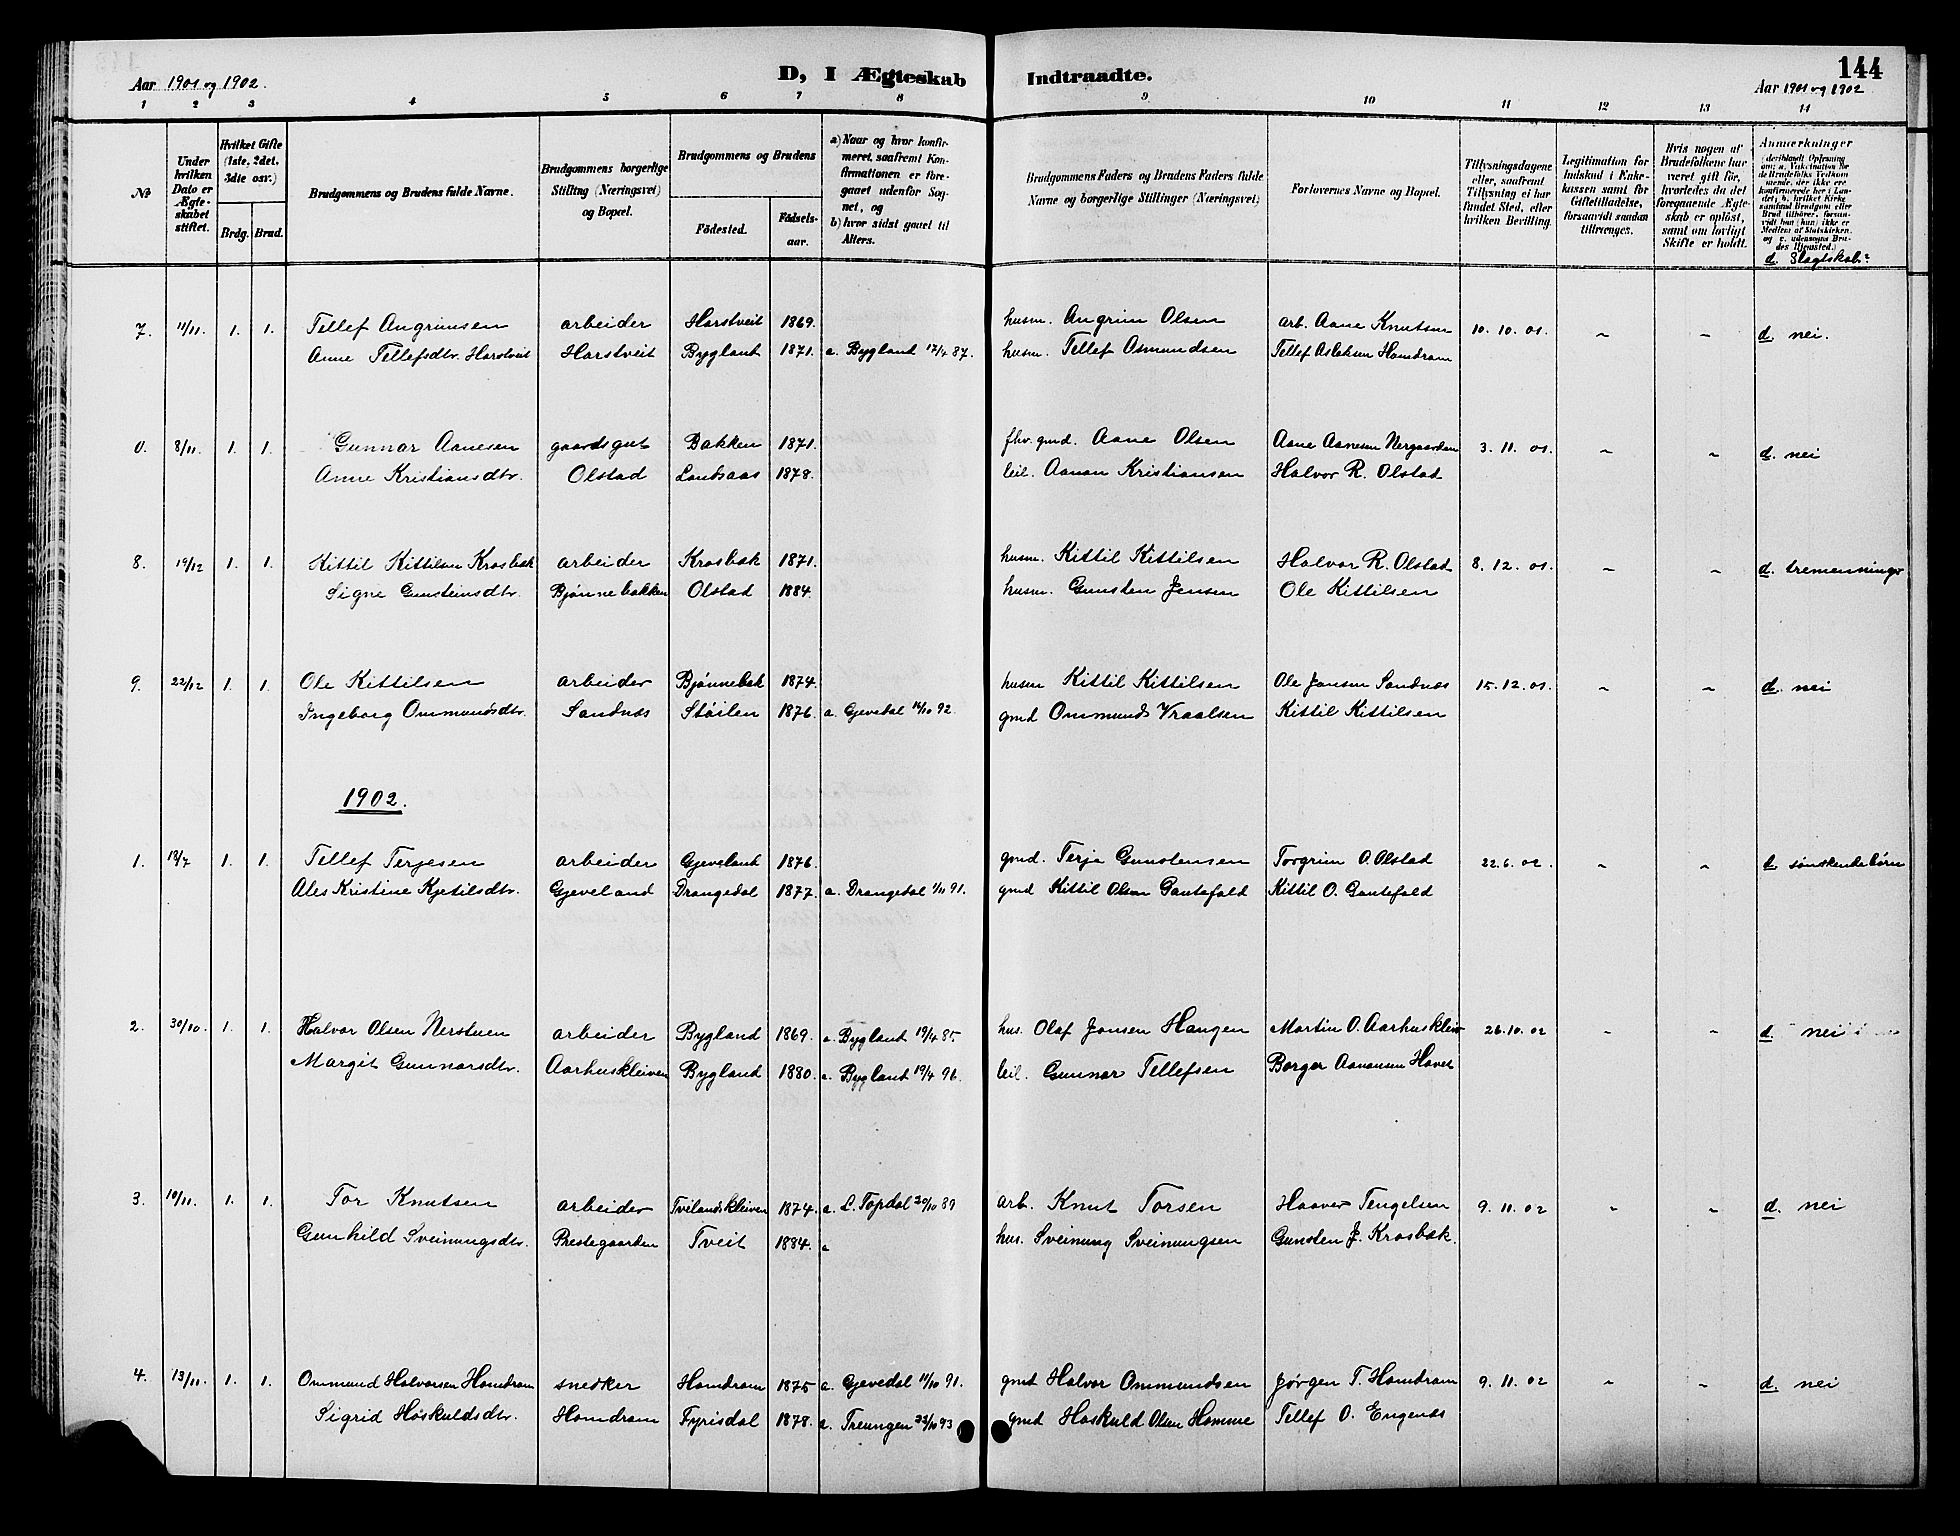 Aar 1901 og 1902.
D, I Ægteskab Indtraadte.
144
Aar 1901 og 1902
1 2 3 4 5 6 7 8 9 10 11 12 13 14
№
Under hvilken Dato er Ægteskabet stiftet.
Hvilket Gifte (1ste, 2det, 3die osv.)
Brdg. Brud.
Brudgommens og Brudens fulde Navne.
Brudgommens borgerlige Stilling (Næringsvei) og Bopæl.
Brudgommens og Brudens
Födested.
Födselsaar.
a) Naar og hvor konfirmeret, saafremt Konfirmationen er foregaaet udenfor Sognet, og
b) hvor sidst gaaet til Alters.
Brudgommens Faders og Brudens Faders fulde Navne og borgerlige Stillinger (Næringsvei)
Forlovernes Navne og Bopæl.
Tillysningsdagene eller, saafremt Tillysning ei har fundet Sted, efter hvilken Bevilling.
Legitimation for Indskud i Enkekassen samt for Giftetilladelse, forsaavidt saadan tiltrænges.
Hvis nogen af Brudefolkene har været gift för, hvorledes da det foregaaende Ægteskab er oplöst, samt om lovligt Skifte er holdt.
Anmærkninger (deriblandt Oplysning om: a. Vakcination for de Brudefolks Vedkommende, der ikke ere konfirmerede her i Landet; b. hvilket Kirkesamfund Brudgom eller Brud tilhörer, forsaavidt han (hun) ikke er Medlem af Statskirken, og c. udensogns Brudes Hjemsted.)
d. Slagtskab?
7. 11/11. 1. 1. Tellef Angrimsen arbeider Harstveit 1869. husm. Angrim Olsen arb. Aane Knutsen 10. 10. 01. " " d. nei.
Anne Tellefsdtr. Harstveit Harstveit Bygland 1871. a. Bygland 17/4 87. husm. Tellef Osmundsen Tellef Aslaksen Hamdram
0. 8/11. 1. 1. Gunnar Aanesen gaardsgut Bakken 1871. fhv. gmd. Aane Olsen Aane Aanesen Nergaarden 3. 11. 01. " " d. nei
Anne Kristiansdtr. Olstad Lauvaas 1878. leil. Aanon Kristiansen Halvor R. Olstad
8. 19/12 1. 1. Kittil Kittilsen Krosbæk arbeider Krosbæk 1871. husm. Kittil Kittilsen Halvor R. Olstad 8. 12. 01. " " d. tremenninger
Signe Gunsteinsdtr. Bjønnebakken Olstad 1884. husm. Gunsten Jensen Ole Kittilsen
9. 22/12 1. 1. Ole Kittilsen arbeider Bjønnebæk 1874. husm Kittil Kittilsen Ole Jensen Sandnæs 15. 12. 01. " " d. nei
Ingeborg Ommundsdtr. Sandnæs Støilen 1876. a. Gjevedal 16/10 92. gmd Ommunds Vraalsen Kittil Kittilsen
1902.
1. 19/7 1. 1. Tellef Terjesen arbeider Gjeveland 1876. gmd. Terje Gunstensen Torgrim O. Olstad 22. 6. 02. " " d. søskendebørn
Ales Kristine Kjetilsdtr. Gjeveland Drangedal 1877. a. Drangedal 1/11 91. gmd Kittil Olsen Gautefald Kittil O. Gautefald
2. 30/10. 1. 1. Halvor Olsen Nerstuen arbeider Bygland 1869. a. Bygland 19/4 85. hus. Olaf Jonsen Haugen Martin O. Aarhuskleiv 26. 10. 02 " " d. nei
Margit Gunnarsdtr. Aarhuskleiven Bygland 1880. a. Bygland 19/4 96. leil. Gunnar Tellefsen Borger Aanonsen Hovet
3. 10/11. 1. 1. Tor Knutsen arbeider Tveitandskleiven 1874. a. L. Topdal 20/10 89 arb. Knut Torsen Haaver Tengelsen 9. 11. 02 " " d. nei
Gunhild Sveinungsdtr. Prestegaarden Tveit 1884. a hus. Sveinung Sveinungsen Gunsten J. Krosbæk.
4. 13/11. 1. 1. Ommund Halvorsen Hamdram snedker Hamdram 1875 a. Gjevedal 11/10 91. gmd Halvor Ommundsen Jørgen T. Hamdram 9. 11. 02 " " d. nei
Sigrid Høskuldsdtr. Hamdram Fyrisdal 1878. a. Treungen 22/10 93 gmd Høskuld Olsen Homme Tellef O. Engenæs